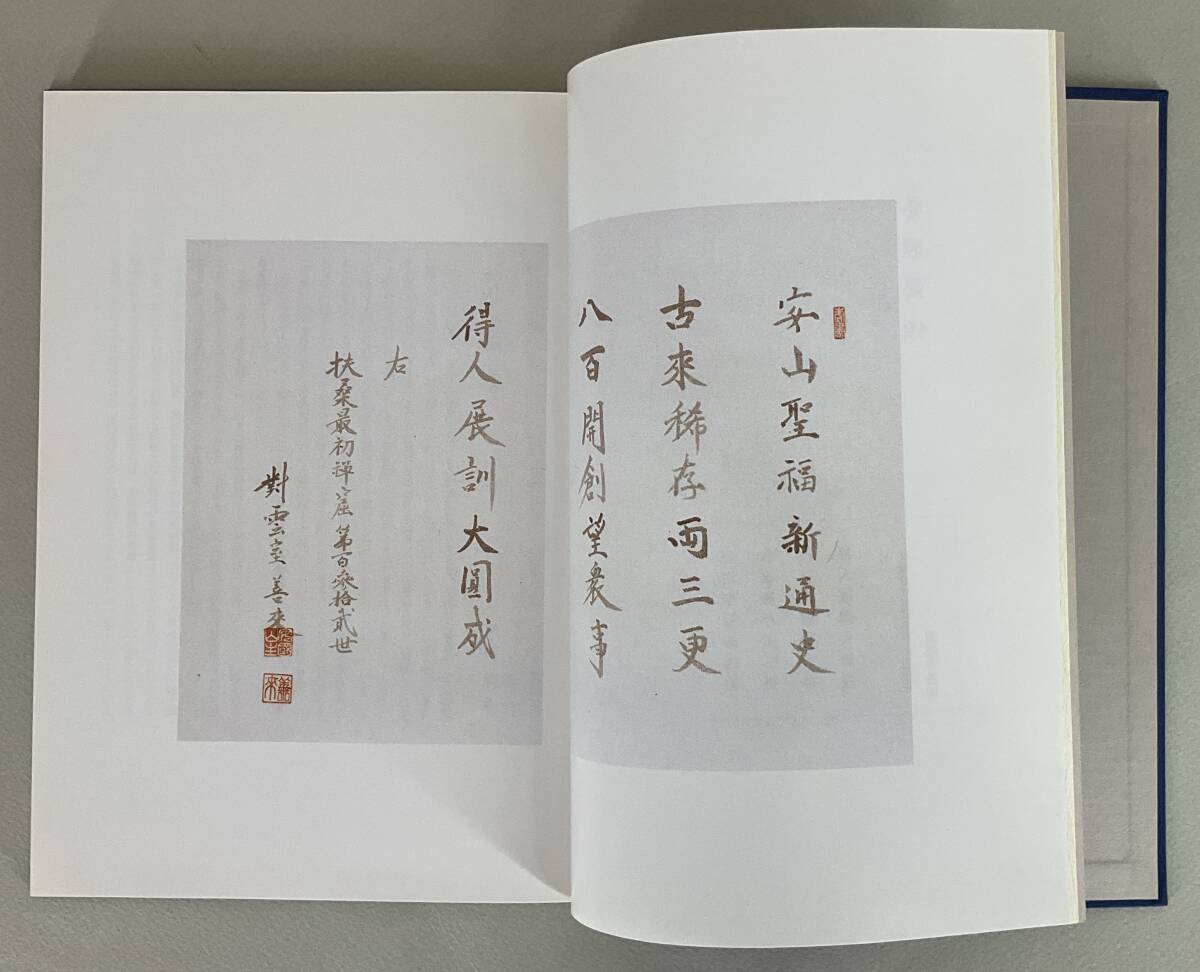 安山聖福新通史
古來稀存両三更
八百開創望衆事
得人展訓大圓成
右
扶桑最初禅窟第百参拾貳世
對雲室善来